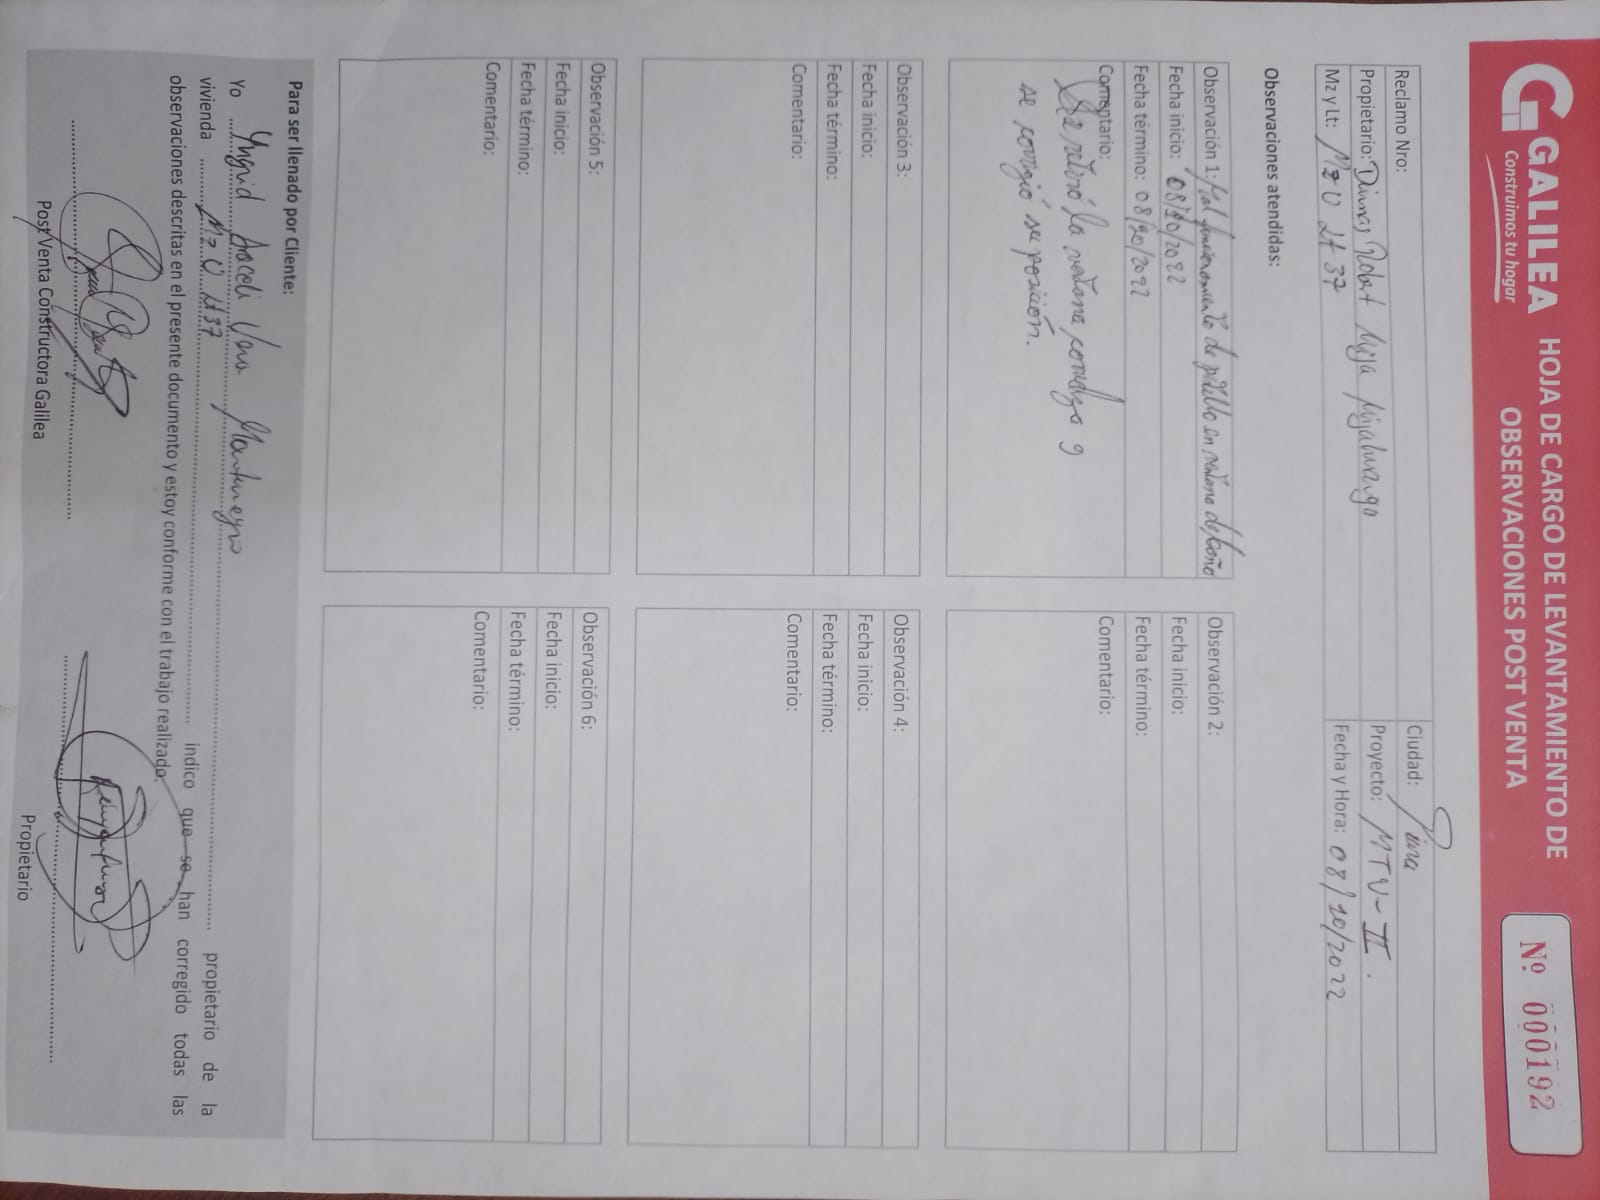 GALILEA
Construimos tu hogar
HOJA DE CARGO DE LEVANTAMIENTO DE
OBSERVACIONES POST VENTA
Nº 000192
Reclamo Nro:
Ciudad: Piura
Propietario: Robert Mijahuanga
Proyecto: MTV-II.
Mz y Lt: Mz U Lt 37
Fecha y Hora: 08/10/2022
Observaciones atendidas:
Observación 1: Mal funcionamiento de pestillo en ventana de baño
Fecha inicio: 08/10/2022
Fecha término: 08/10/2022
Comentario:
Se retiró la ventana corrediza y
se corrigió su posición.
Observación 2:
Fecha inicio:
Fecha término:
Comentario:
Observación 3:
Fecha inicio:
Fecha término:
Comentario:
Observación 4:
Fecha inicio:
Fecha término:
Comentario:
Observación 5:
Fecha inicio:
Fecha término:
Comentario:
Observación 6:
Fecha inicio:
Fecha término:
Comentario:
Para ser llenado por Cliente:
Yo Yngrid Montenegro propietario de la
vivienda Mz U Lt 37 indico que se han corregido todas las
observaciones descritas en el presente documento y estoy conforme con el trabajo realizado.
Post Venta Constructora Galilea
Propietario